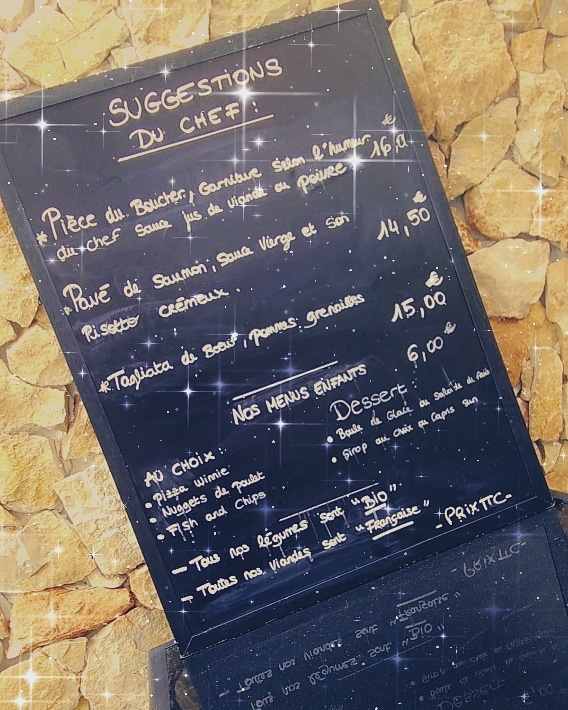 SUGGESTIONS
DU CHEF :
* Pièce du Boucher, Garniture selon l'humeur
du chef Sauce jus de viande ou poivre 16,0 €
* Pavé de Saumon, Sauce Vierge et Son
Risotto crémeux. 14,50
* Tagliata de Boeuf, pommes grenailles 15,00 €
NOS MENUS ENFANTS 6,00 €
AU CHOIX :
• Pizza Winnie
• Nuggets de Poulet
• Fish and Chips
Dessert :
• Boule de Glace ou Salade de fruits
• Sirop au choix ou Capri Sun
— Tous nos légumes sont "BIO"
— Toutes nos Viandes sont "Française"
- PRIX TTC -